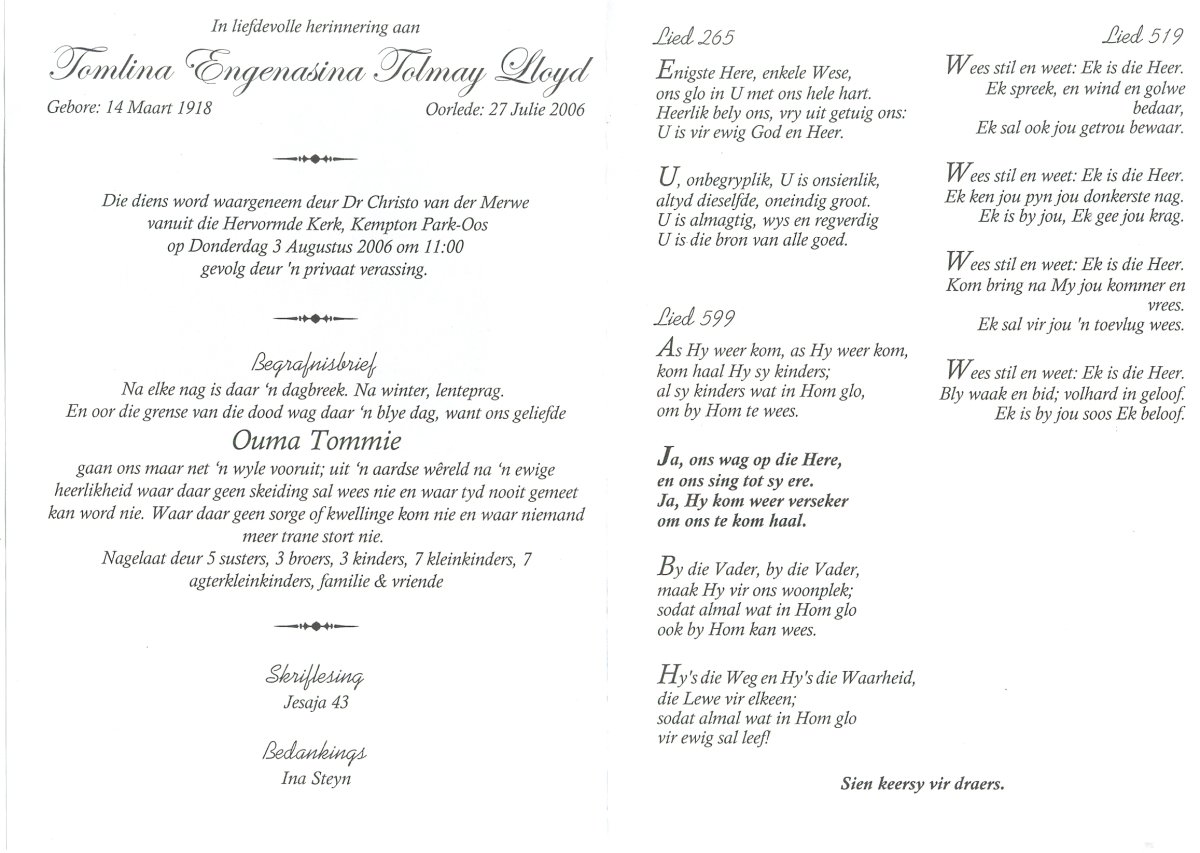 In liefdevolle herinnering aan
Tomlina Engenasina Tolmay Lloyd
Gebore: 14 Maart 1918 Oorlede: 27 Julie 2006
Die diens word waargeneem deur Dr Christo van der Merwe
vanuit die Hervormde Kerk, Kempton Park-Oos
op Donderdag 3 Augustus 2006 om 11:00
gevolg deur 'n privaat verassing.
Begrafnisbrief
Na elke nag is daar ‘n dagbreek. Na winter, lenteprag.
En oor die grense van die dood wag daar ‘n blye dag, want ons geliefde
Ouma Tommie
gaan ons maar net ‘n wyle vooruit; uit ‘n aardse wêreld na ‘n ewige
heerlikheid waar daar geen skeiding sal wees nie en waar tyd nooit gemeet
kan word nie. Waar daar geen sorge of kwellinge kom nie en waar niemand
meer trane stort nie.
Nagelaat deur 5 susters, 3 broers, 3 kinders, 7 kleinkinders, 7
agterkleinkinders, familie & vriende
Skriflesing
Jesaja 43
Bedankings
Ina Steyn
Lied 265
Enigste Here, enkele Wese,
ons glo in U met ons hele hart.
Heerlik bely ons, vry uit getuig ons:
U is vir ewig God en Heer.
U, onbegryplik, U is onsienlik,
altyd dieselfde, oneindig groot.
U is almagtig, wys en regverdig
U is die bron van alle goed.
Lied 599
As Hy weer kom, as Hy weer kom,
kom haal Hy sy kinders;
al sy kinders wat in Hom glo,
om by Hom te wees.
Ja, ons wag op die Here,
en ons sing tot sy ere.
Ja, Hy kom weer verseker
om ons te kom haal.
By die Vader, by die Vader,
maak Hy vir ons woonplek;
sodat almal wat in Hom glo
ook by Hom kan wees.
Hy's die Weg en Hy's die Waarheid,
die Lewe vir elkeen;
sodat almal wat in Hom glo
vir ewig sal leef!
Lied 519
Wees stil en weet: Ek is die Heer.
Ek spreek, en wind en golwe
bedaar,
Ek sal ook jou getrou bewaar.
Wees stil en weet: Ek is die Heer.
Ek ken jou pyn jou donkerste nag.
Ek is by jou, Ek gee jou krag.
Wees stil en weet: Ek is die Heer.
Kom bring na My jou kommer en
vrees.
Ek sal vir jou 'n toevlug wees.
Wees stil en weet: Ek is die Heer.
Bly waak en bid; volhard in geloof.
Ek is by jou soos Ek beloof.
Sien keersy vir draers.